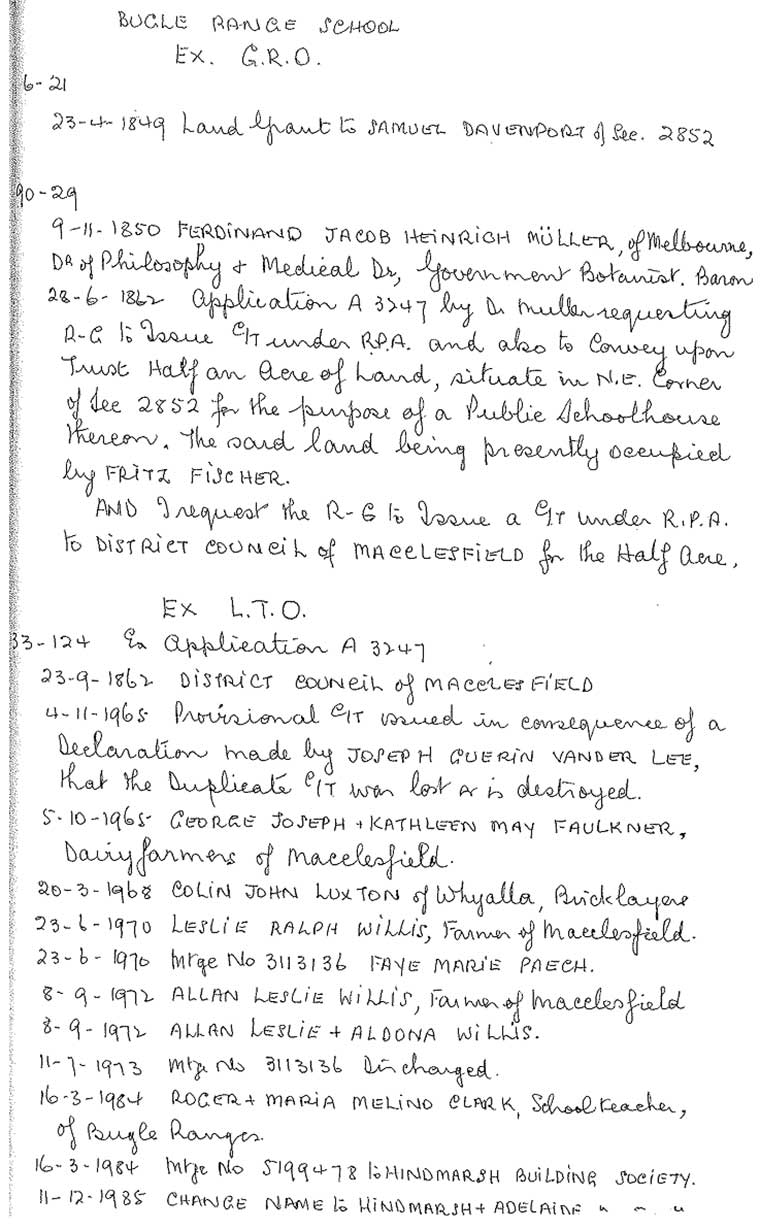 BUGLE RANGE SCHOOL
EX. G.R.O.
6-21
23-4-1849 Land Grant to SAMUEL DAVENPORT of Sec. 2852
90-29
9-11-1850 FERDINAND JACOB HEINRICH MÜLLER, of Melbourne,
DR of Philosophy + Medical Dr, Government Botanist. Baron
28-6-1862 Application A 3247 by Dr Muller requesting
R-G to Issue C/T under R.P.A. and also to Convey upon
Trust Half an Acre of Land, situate in N.E. Corner
of Sec 2852 for the purpose of a Public Schoolhouse
thereon. The said land being presently occupied
by FRITZ FISCHER.
AND I request the R-G to Issue a C/T under R.P.A.
to DISTRICT COUNCIL of MACCLESFIELD for the Half Acre.
EX L.T.O.
33-124 Ex Application A 3247
23-9-1862 DISTRICT COUNCIL of MACCLESFIELD
4-11-1965 Provisional C/T issued in consequence of a
Declaration made by JOSEPH GUERIN VANDER LEE,
that the Duplicate C/T was lost or is destroyed.
5-10-1965 GEORGE JOSEPH + KATHLEEN MAY FAULKNER,
Dairyfarmers of Macclesfield.
20-3-1968 COLIN JOHN LUXTON of Whyalla, Bricklayer
23-6-1970 LESLIE RALPH WILLIS, Farmer of Macclesfield.
23-6-1970 Mtge No 3113136 FAYE MARIE PAECH.
8-9-1972 ALLAN LESLIE WILLIS, Farmer of Macclesfield
8-9-1972 ALLAN LESLIE + ALDONA WILLIS.
11-7-1973 Mtge No 3113136 Discharged.
16-3-1984 ROGER + MARIA MELINO CLARK, Schoolteacher,
of Bugle Ranges.
16-3-1984 Mtge No 5199478 to HINDMARSH BUILDING SOCIETY.
11-12-1985 CHANGE NAME to HINDMARSH + ADELAIDE " " "